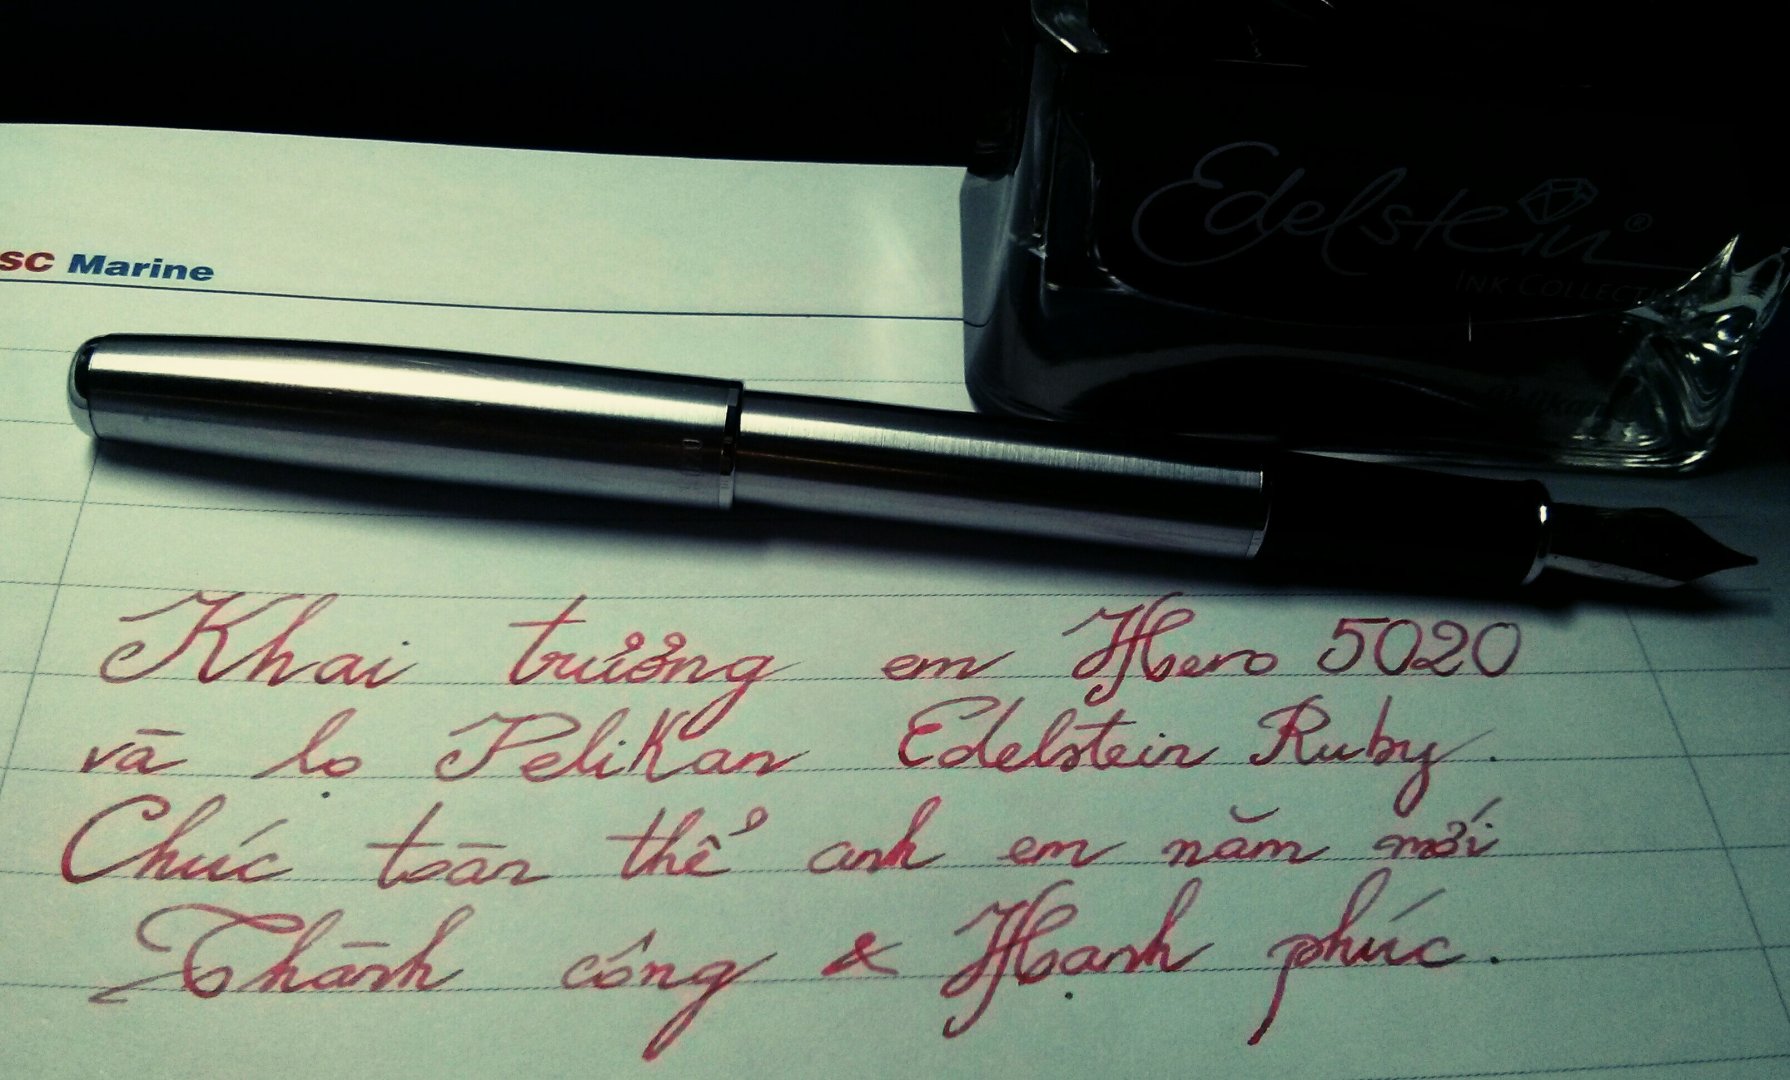 Edelstein®
INK COLLECT
SC Marine
Khai trương em Hero 5020
và lọ Pelikan Edelstein Ruby.
Chúc toàn thể anh em năm mới
Thành công & Hạnh phúc.